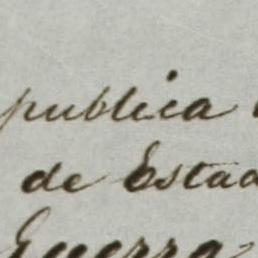 publica
de Estad
Guerra